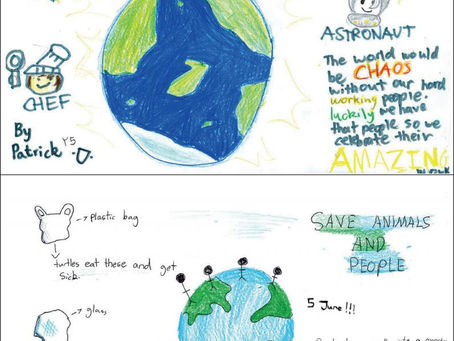 ASTRONAUT
The world would
be CHAOS
without our hard
working people.
luckily we have
that people so we
celebrate their
AMAZING
CHEF
By
Patrick Y5
→ plastic bag
turtles eat these and get
sick.
→ glass
SAVE ANIMALS
AND
PEOPLE
5 June!!!